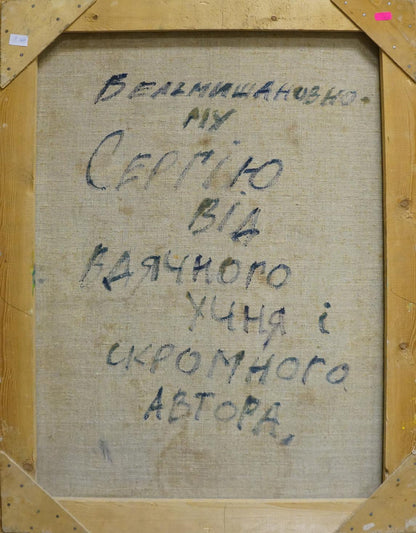 Вельмишановно-
му
Сергію
від
вдячного
учня і
скромного
автора.